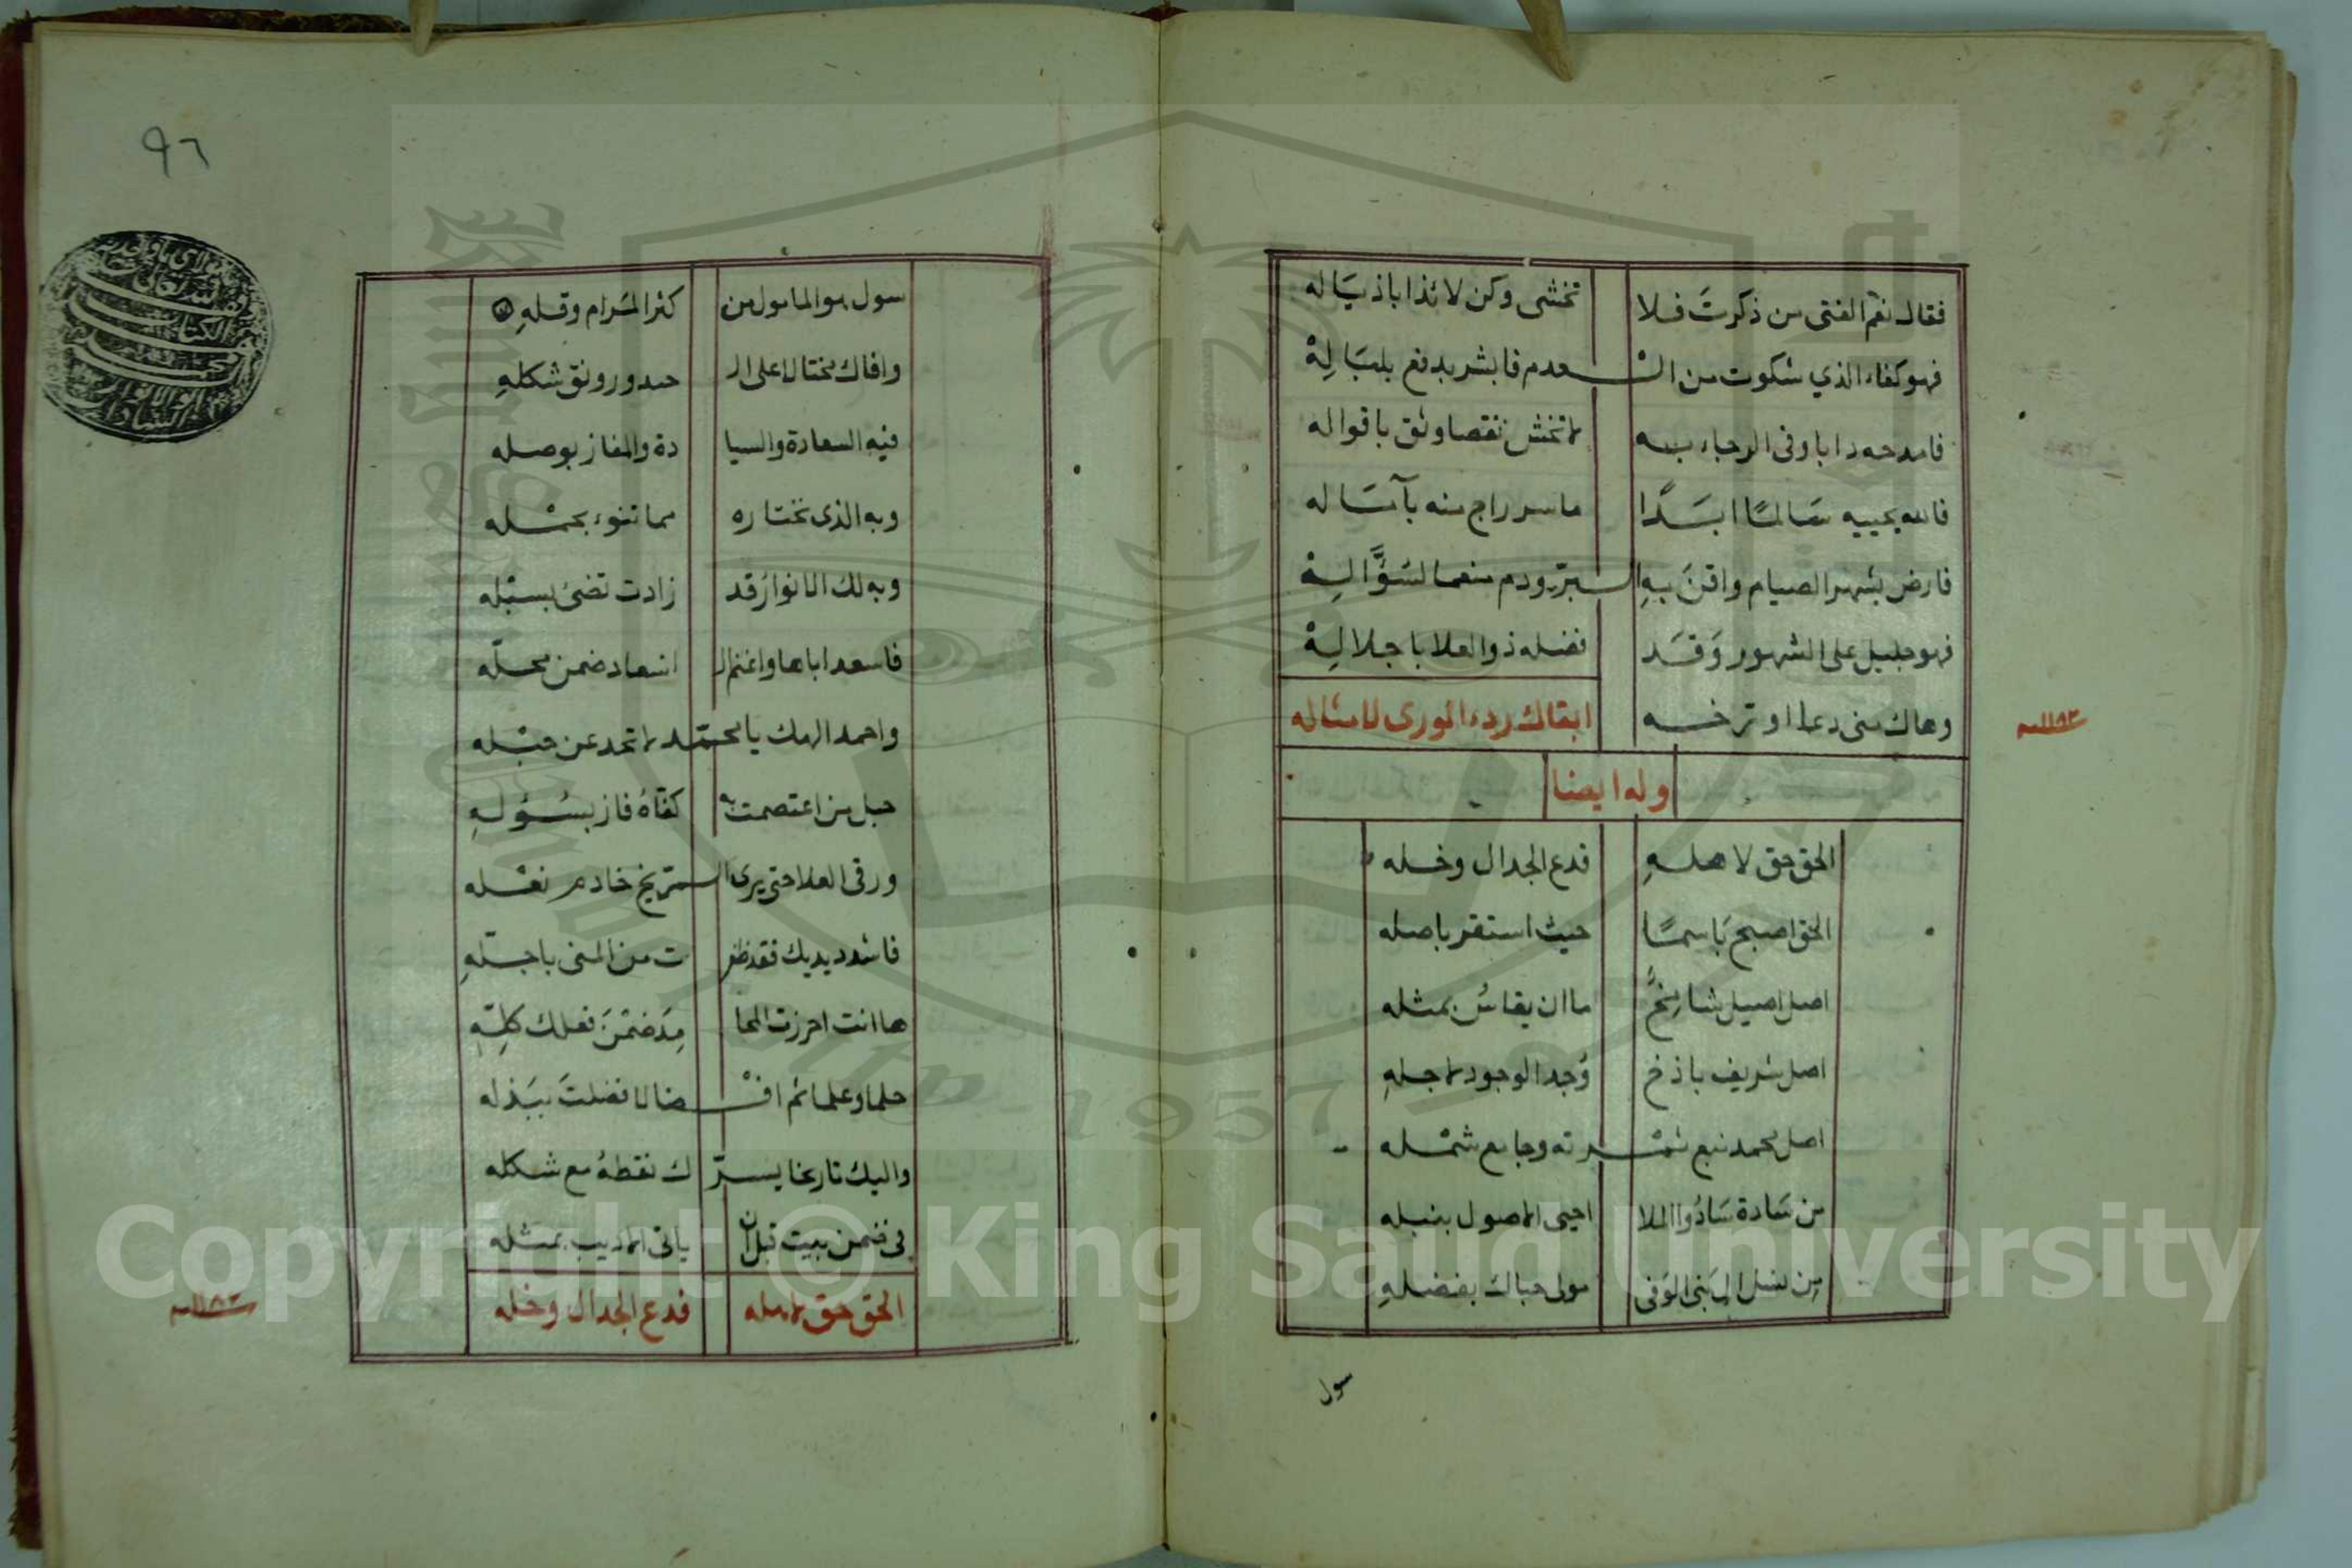 فقال نعم الفتى من ذكرتَ فلا تخشى وكن لائذا باذيَاله
فهو كفاء الذي شكوت من العدم فابشر بدفع بلبَالِهْ
فامدحه دابا وفى الرجاء به لا تخش نقصا وثق باقواله
فالله يحييه سَالمًا ابدًا ما سر راج منه بآمَاله
فارض بشهر الصيام واقرَ بهِ البرّ ودم منعما لسُؤَّالِهْ
فهو جليل على الشهور وَقَد فضله ذو العلا باجلالِهْ
وهاك منى دعا اوترخه ابقاك ردء الورى لامثاله
١١٨٣ سنه
وله ايضا
الحق حق لاهلهِ فدع الجدال وخله
الحق اصبح بَاسمًا حيث استقر باصله
اصل اصيل شامخٌ ما ان يقاسُ بمثله
اصل شريف باذخ وُجد الوجود لاجلهِ
اصل محمد نبع ثمرته وجامع شمله
من سَادة سَادُوا الملا احيى الاصول بنبله
مِن نسل النَبى الوَفى مولى حباك بفضلهِ
سول
٩٦
سول هو المامول من كثر المَرام وقلهِ
وافاك مختالا على الصدور ورونق شكلهِ
فيه السعادة والسيادة والمفاز بوصله
وبه الذى تختاره مما تنوء بحمله
وبه لك الانوارُ قد زادت تضئ بسبْله
فاسعد اباها واغنم الاسعاد ضمن محلّه
واحمد الهك يا محمّد لا تحد عن حبْله
حبل من اعتصمت به كفاهُ فاز بسُؤلهِ
ورقى العلا حتى يرى المرّيخ خادم نعْله
فاشدد يديك فقد ظفرت من المنى باجلّهِ
ها انت احرزت المحامِدَ ضمْنَ فعلك كلِّهِ
حلما وعلما ثم افْضالا فضلتَ ببَذله
واليك تاريخا يسرّك نقطهُ مع شكله
فى ضمن بيت قبل ان ياتى الاديب بمثله
الحق حق لاهله فدع الجدال وخله
١١٨٣ سنه
Copyright © King Saud University
1957